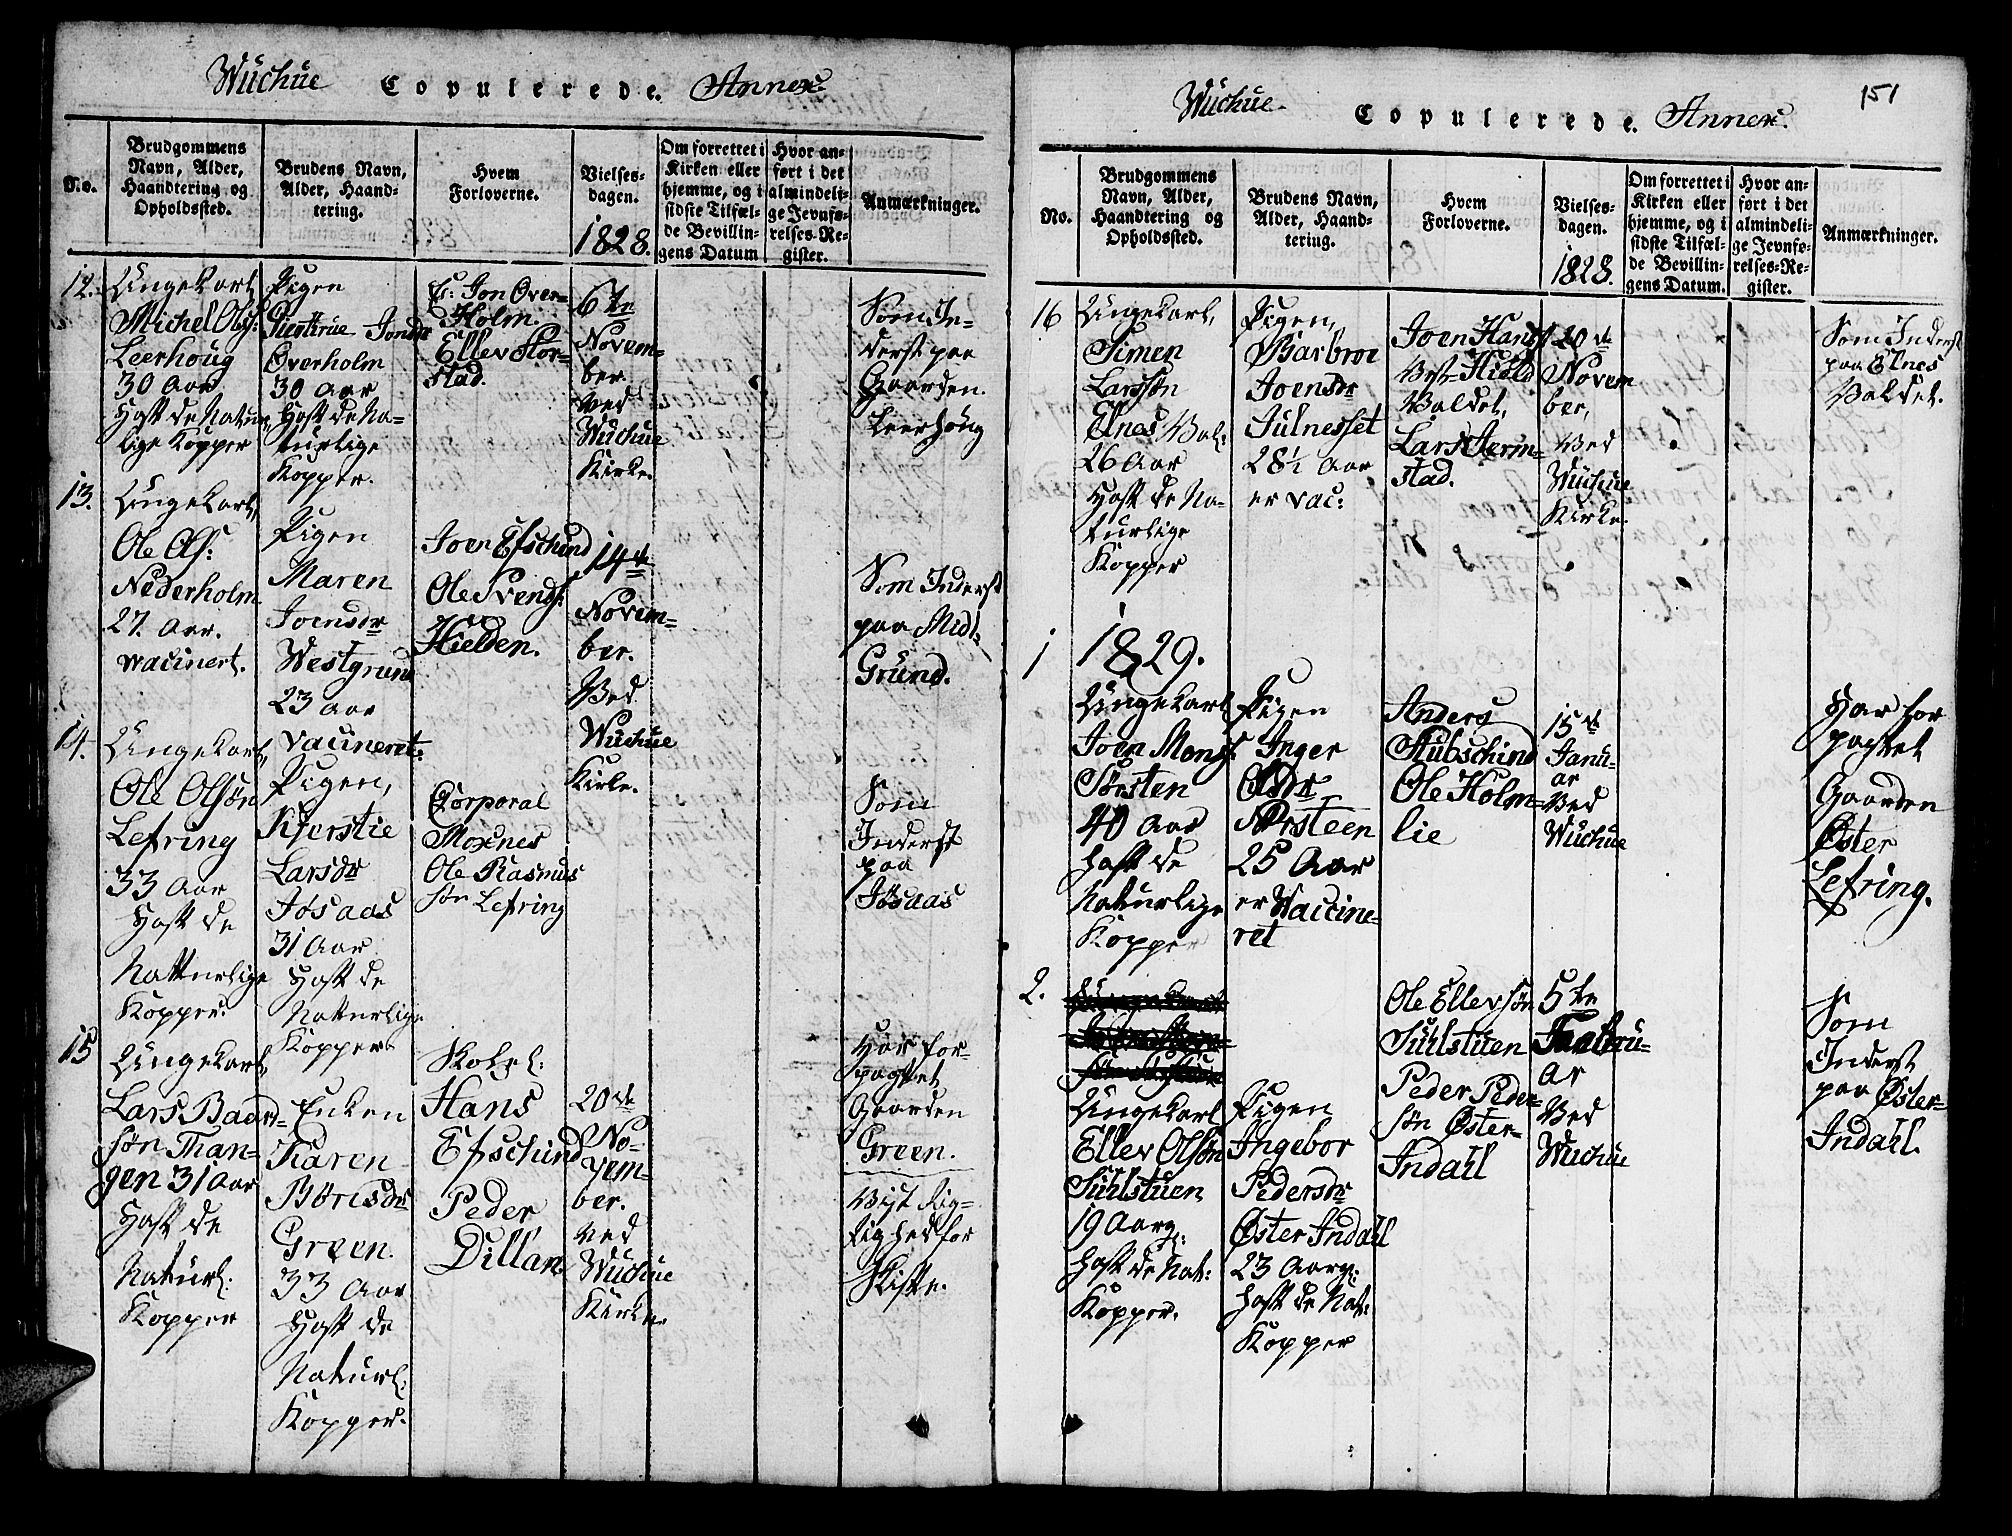 Wuchue Copulerede. Annex.
No.
Brudgommens
Navn, Alder,
Haandtering og
Opholdssted.
Brudens Navn,
Alder, Haand-
tering.
Hvem
Forloverne.
Vielses-
dagen.
1828.
Om forrettet i
Kirken eller
hjemme, og i
sidste Tilfæl-
de Bevillin-
gens Datum
Hvor an-
ført i det
almindeli-
ge Jevnfø-
relses-Re-
gister.
Anmærkninger.
12.
Ungekarl
Michel Ols:
Leerhoug
30 Aar
Haft de Natur-
lige Kopper
Pigen
Jonsdr
Overholm
30 Aar
Haft de Na-
turlige
Kopper.
Jon Over-
Holm.
Ellev Stor-
stad.
6te
Novem-
ber.
ved
Wuchue
Kirke.
Som In-
derst paa
Gaarden
Leerhoug
13.
Ungekarl,
Ole Ols:
Nederholm
27. Aar.
vacinert.
Pigen
Maren
Joensdr
Westgrund
23 Aar
vacineret.
Joen Efschind
Ole Svends:
Hielden.
14de
Novem-
ber.
Ved
Wuchue
Kirke.
Som Inderst
paa Midt-
Grund.
14.
Ungekarl,
Ole Olsøn
Lefring
33 Aar
Haft de
Natturlige
Kopper.
Pigen,
Kjerstie
Larsdr
Jøsaas
31 Aar
Haft de
Naturlige
Kopper
Corporal
Moxnes
Ole Rasmus
søn Lefring
Som
Inderst
paa
Jøsaas
15
Ungekarl
Lars Baard-
søn Than-
gen 31 Aar
Haft de
Naturl:
Kopper
Enken
Karen
Børisdr
Green.
33 Aar
Haft de
Naturl:
Kopper.
Hans
Efschind
Peder
Dillan
20de
No-
vem-
ber.
ved
Wuchue
Kirke.
Har for-
pagtet
Gaarden
Green.
Vist Rig-
tighed for
Skifte.
Wuchue. Copulerede. Annex.
151
No.
Brudgommens
Navn, Alder,
Haandtering og
Opholdssted.
Brudens Navn,
Alder, Haand-
tering.
Hvem
Forloverne.
Vielses-
dagen.
1828.
Om forrettet i
Kirken eller
hjemme, og i
sidste Tilfæl-
de Bevillin-
gens Datum.
Hvor an-
ført i det
almindeli-
ge Jevnfø-
relses-Re-
gister.
Anmærkninger.
16
Ungekarl,
Simen
Larssøn
Elnes Val:
26 Aar
Haft de Na-
turlige
Kopper
Pigen,
Barbroe
Joensdr
Julnesset
28½ Aar
er vac:
Joen Hans
Hield
Valdet,
Lars Serm-
stad.
20de
Novem
ber,
Ved
Wuchue
Kirke.
Som Inderst
paa Elnes
Valdet.
1
1829.
Ungekarl
Joen Mons:
Sørsten
40 Aar
haft de
Naturlige
Kopper
Pigen
Inger
Olsdr
25 Aar
er Waccine-
ret
Anders
Stubschind
Ole Holm-
lie
15de
Janu-
ar
Ved
Wuchue
Har for
pagtet
Gaarden
Øster
Lefring.
2.
Ungekarl
Ellev Olsøn
Suhlstuen
19 Aarg:
haft de Nat:
Kopper.
Pigen
Ingebor
Pedersdr
Øster Indahl
23 Aarg:
haft de Nat:
Kopper
Ole Ellevsøn
Suhlstuen
Peder Peder-
søn Øster-
Indahl
5te
Febru-
ar
Ved
Wuchue
Som
Inderst
paa Øster-
Indahl.